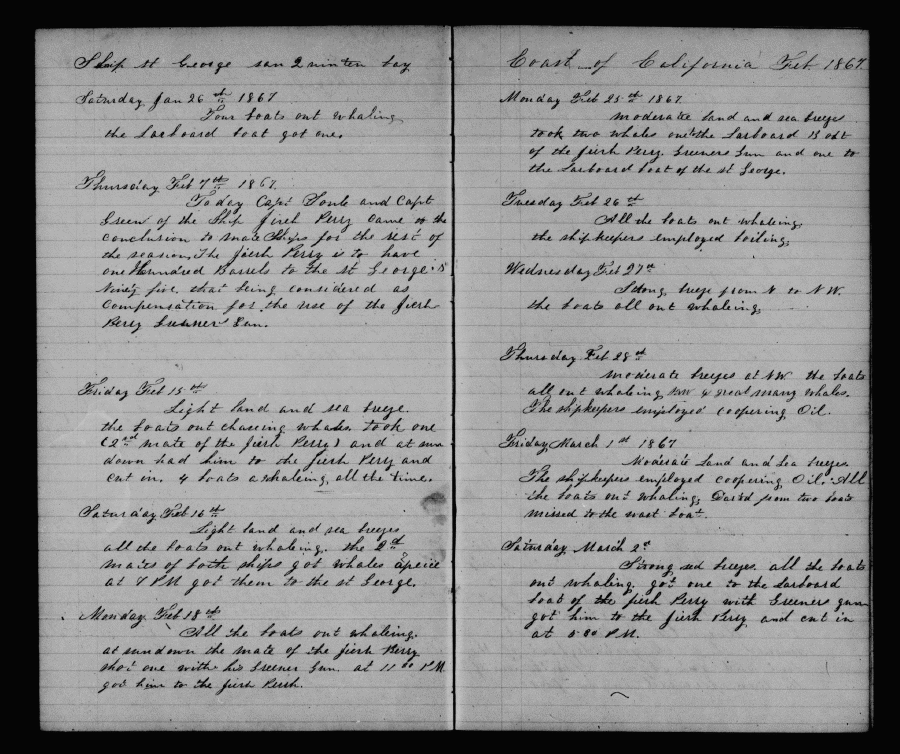 Ship st George san 2 uinten bay
Saturday Jan 26th 1867
Four boats out whaling
the Larboard boat got one.
Thursday Feb 7th 1867.
To day Capt Soule and Capt
Green of the Ship Jireh Perry came to the
conclusion to mate Ships for the rest of
the season. The Jireh Perry is to have
one Hundred Barrels to the st George's
Ninety five that being considered as
Compensation for the use of the Jireh
Perry Greener Gun.
Friday Feb 15th
Light land and sea breeze.
the boats out chasing whales took one
(2nd mate of the Jireh Perry) and at sun
down had him to the Jireh Perry and
cut in. 4 boats a whaling all the time.
Saturday Feb 16th
Light land and sea breezes
all the boats out whaleing. the 2nd
mates of both ships got whales apeice
at 7 PM got them to the st George.
Monday Feb 18th
All the boats out whaleing.
at sundown the mate of the Jireh Perry
shot one with his Greener Gun. at 11 PM
got him to the Jireh Perrh.
Coast of California Feb 1867
Monday Feb 25th 1867.
moderate land and sea breezes
took two whales one to the Larboard Boat
of the Jireh Perry. Greeners Gun and one to
the Larboard boat of the st George.
Tuesday Feb 26th
All the boats out whaleing
the shipkeepers employed boiling.
Wednesday Feb 27th
Strong breeze from N to NW.
the boats all out whaleing.
Thursday Feb 28th
moderate breezes at NW the boats
all out whaleing saw a great many whales.
The shipkeepers employed coopering Oil.
Friday March 1st 1867
Moderate Land and Sea breezes
The shipkeepers employed coopering Oil. All
the boats out whaleing. Darted from two boats
missed to the wast boat.
Saturday March 2d
Strong sed breezes. all the boats
out whaleing. got one to the Larboard
boat of the Jireh Perry with Greeners gun
got him to the Jireh Perry and cut in
at 5 30 P.M.